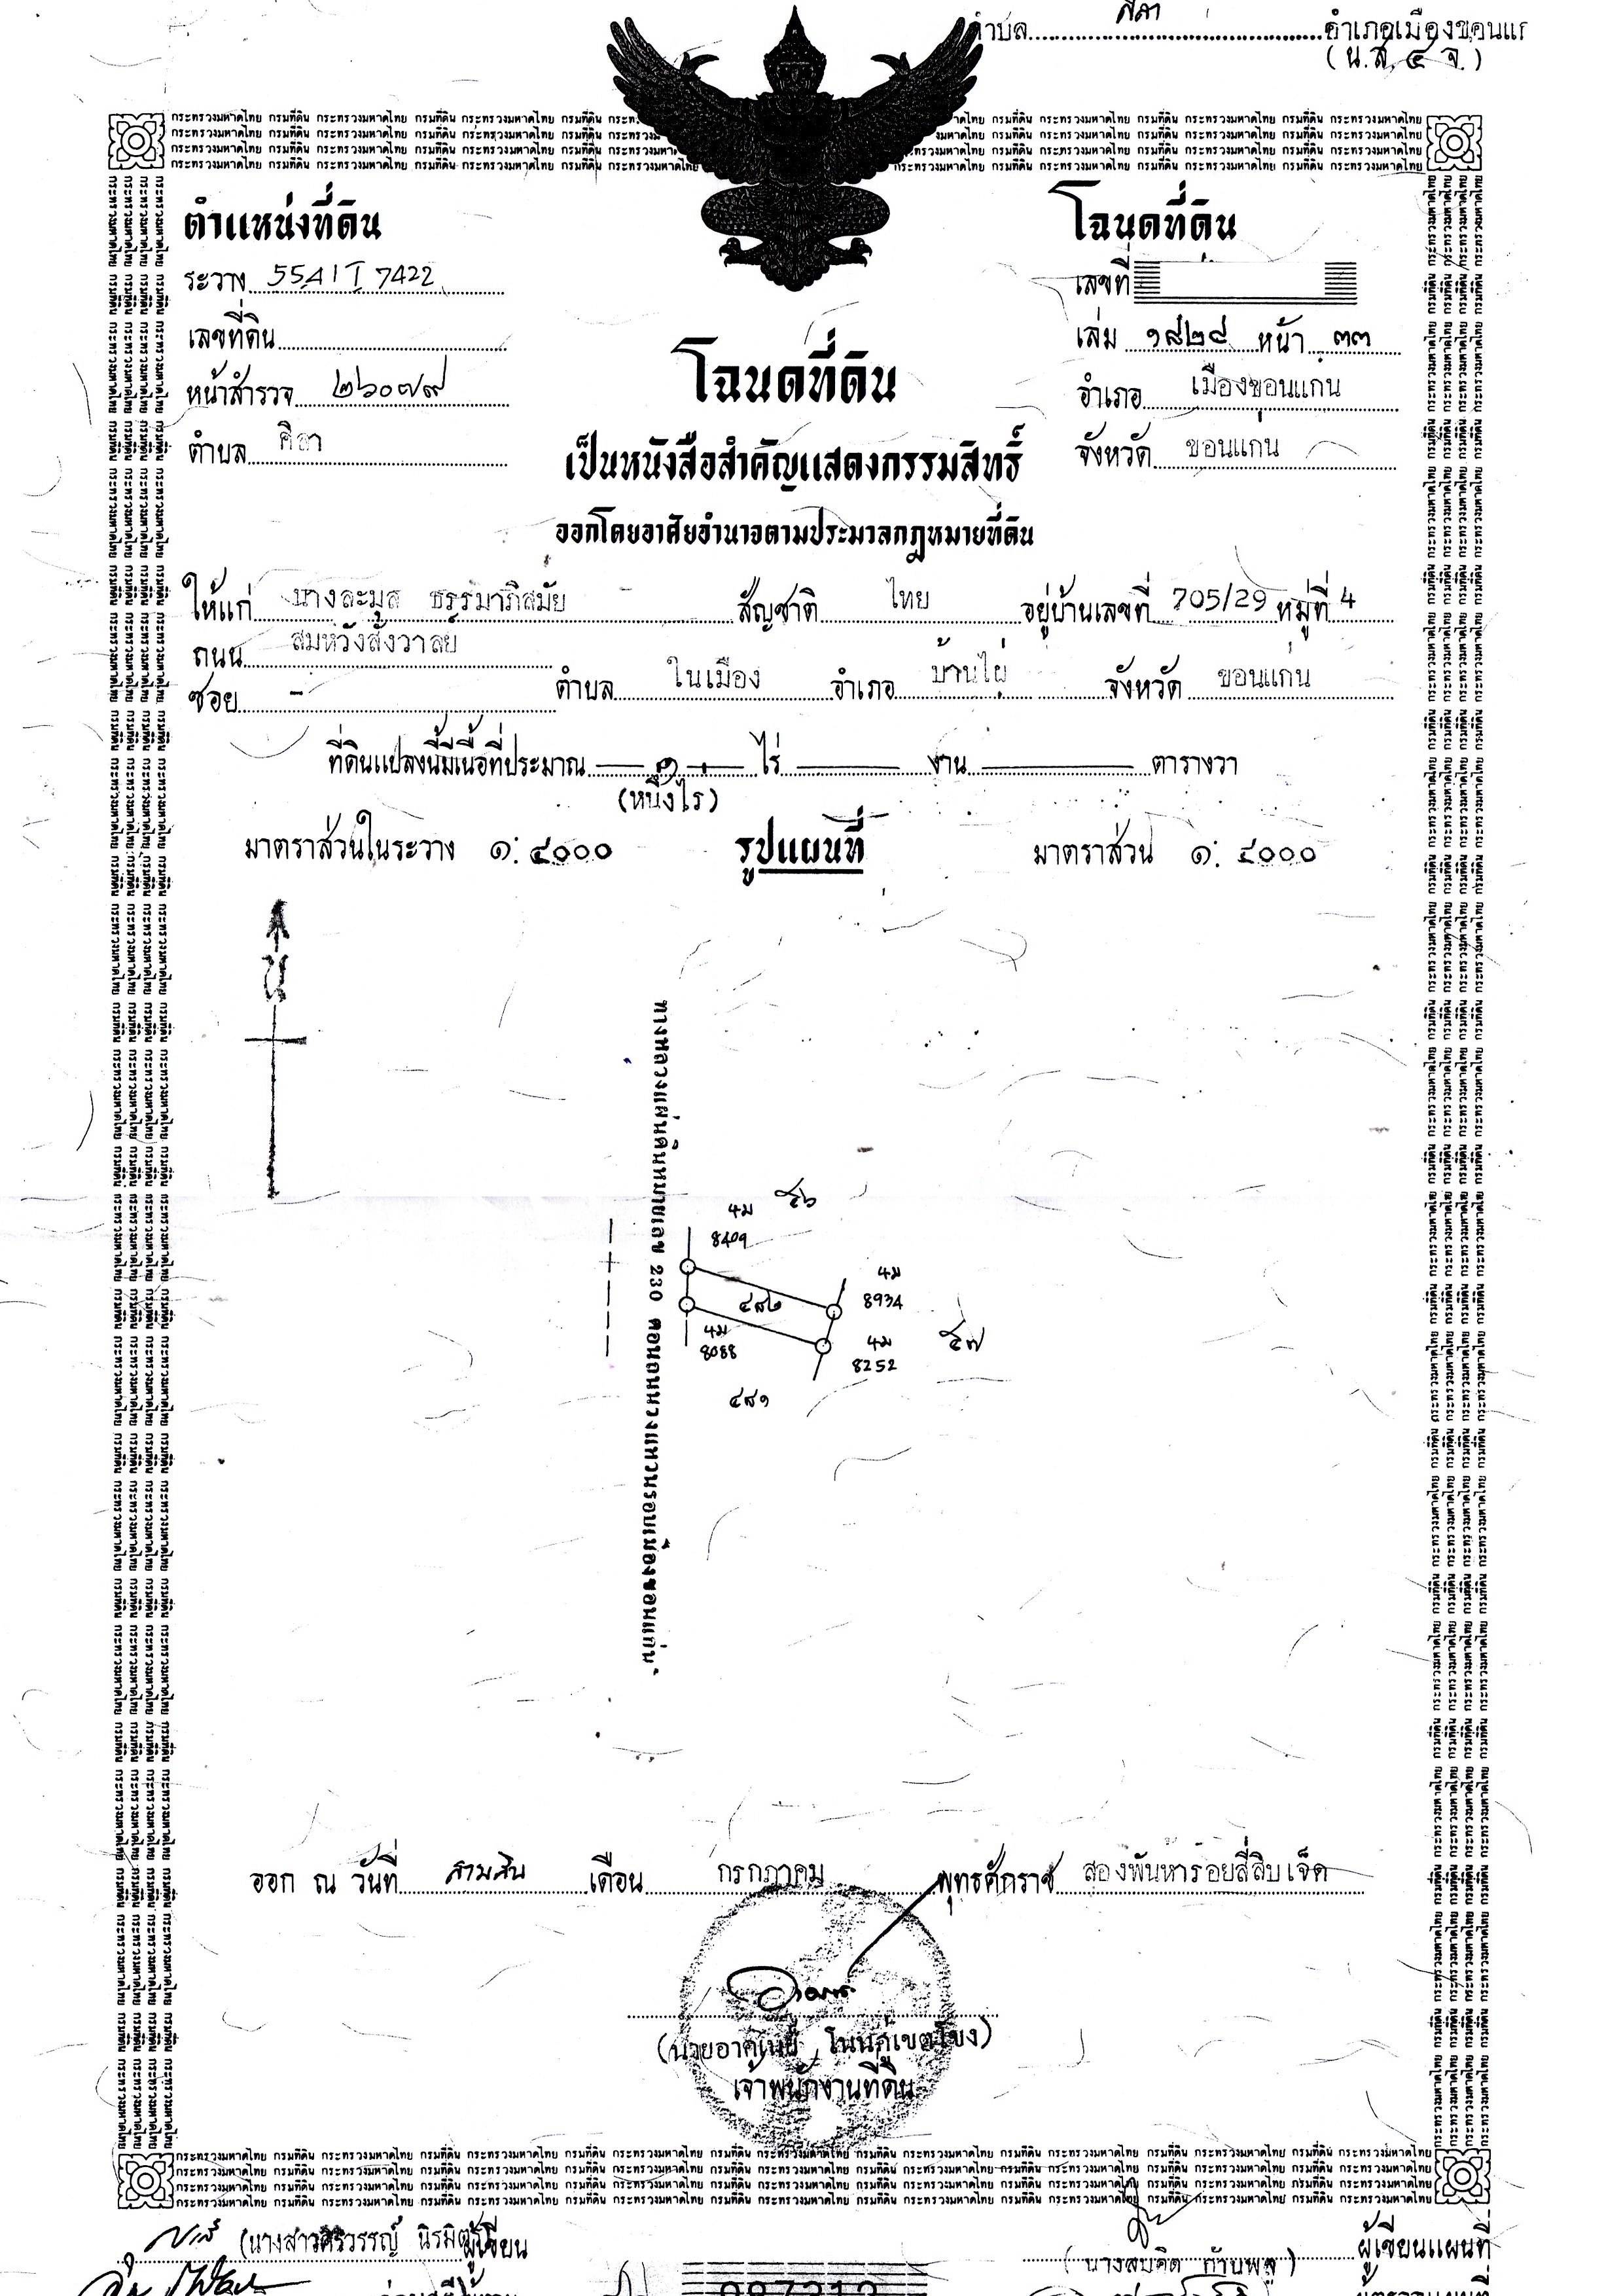 ตำบล ศิลา อำเภอเมืองขอนแก่น
(น.ส. ๔ จ.)
กระทรวงมหาดไทย กรมที่ดิน กระทรวงมหาดไทย กรมที่ดิน กระทรวงมหาดไทย กรมที่ดิน
ตำแหน่งที่ดิน
ระวาง 5541 I 7422
เลขที่ดิน
หน้าสำรวจ ๒๖๐๗๙
ตำบล ศิลา
โฉนดที่ดิน
เลขที่
เล่ม ๑๘๒๔ หน้า ๓๓
อำเภอ เมืองขอนแก่น
จังหวัด ขอนแก่น
โฉนดที่ดิน
เป็นหนังสือสำคัญแสดงกรรมสิทธิ์
ออกโดยอาศัยอำนาจตามประมวลกฎหมายที่ดิน
ให้แก่ นางละมุล ธรรมาภิสมัย สัญชาติ ไทย อยู่บ้านเลขที่ 705/29 หมู่ที่ 4
ถนน สมหวังสังวาลย์
ซอย - ตำบล ในเมือง อำเภอ บ้านไผ่ จังหวัด ขอนแก่น
ที่ดินแปลงนี้มีเนื้อที่ประมาณ ๑ ไร่ งาน ตารางวา
(หนึ่งไร่)
มาตราส่วนในระวาง ๑: ๔๐๐๐ รูปแผนที่ มาตราส่วน ๑: ๔๐๐๐
น
ทางหลวงแผ่นดินหมายเลข 230 ตอนถนนวงแหวนรอบเมืองขอนแก่น
๔๖
4ม
8409
4ม
8934
๔๘๒
๔๗
4ม
8088
4ม
8252
๔๘๑
ออก ณ วันที่ สามสิบ เดือน กรกฎาคม พุทธศักราช สองพันห้าร้อยสี่สิบเจ็ด
เจ้าพนักงานที่ดิน
กระทรวงมหาดไทย กรมที่ดิน กระทรวงมหาดไทย กรมที่ดิน กระทรวงมหาดไทย กรมที่ดิน
ผู้เขียน
ผู้เขียนแผนที่